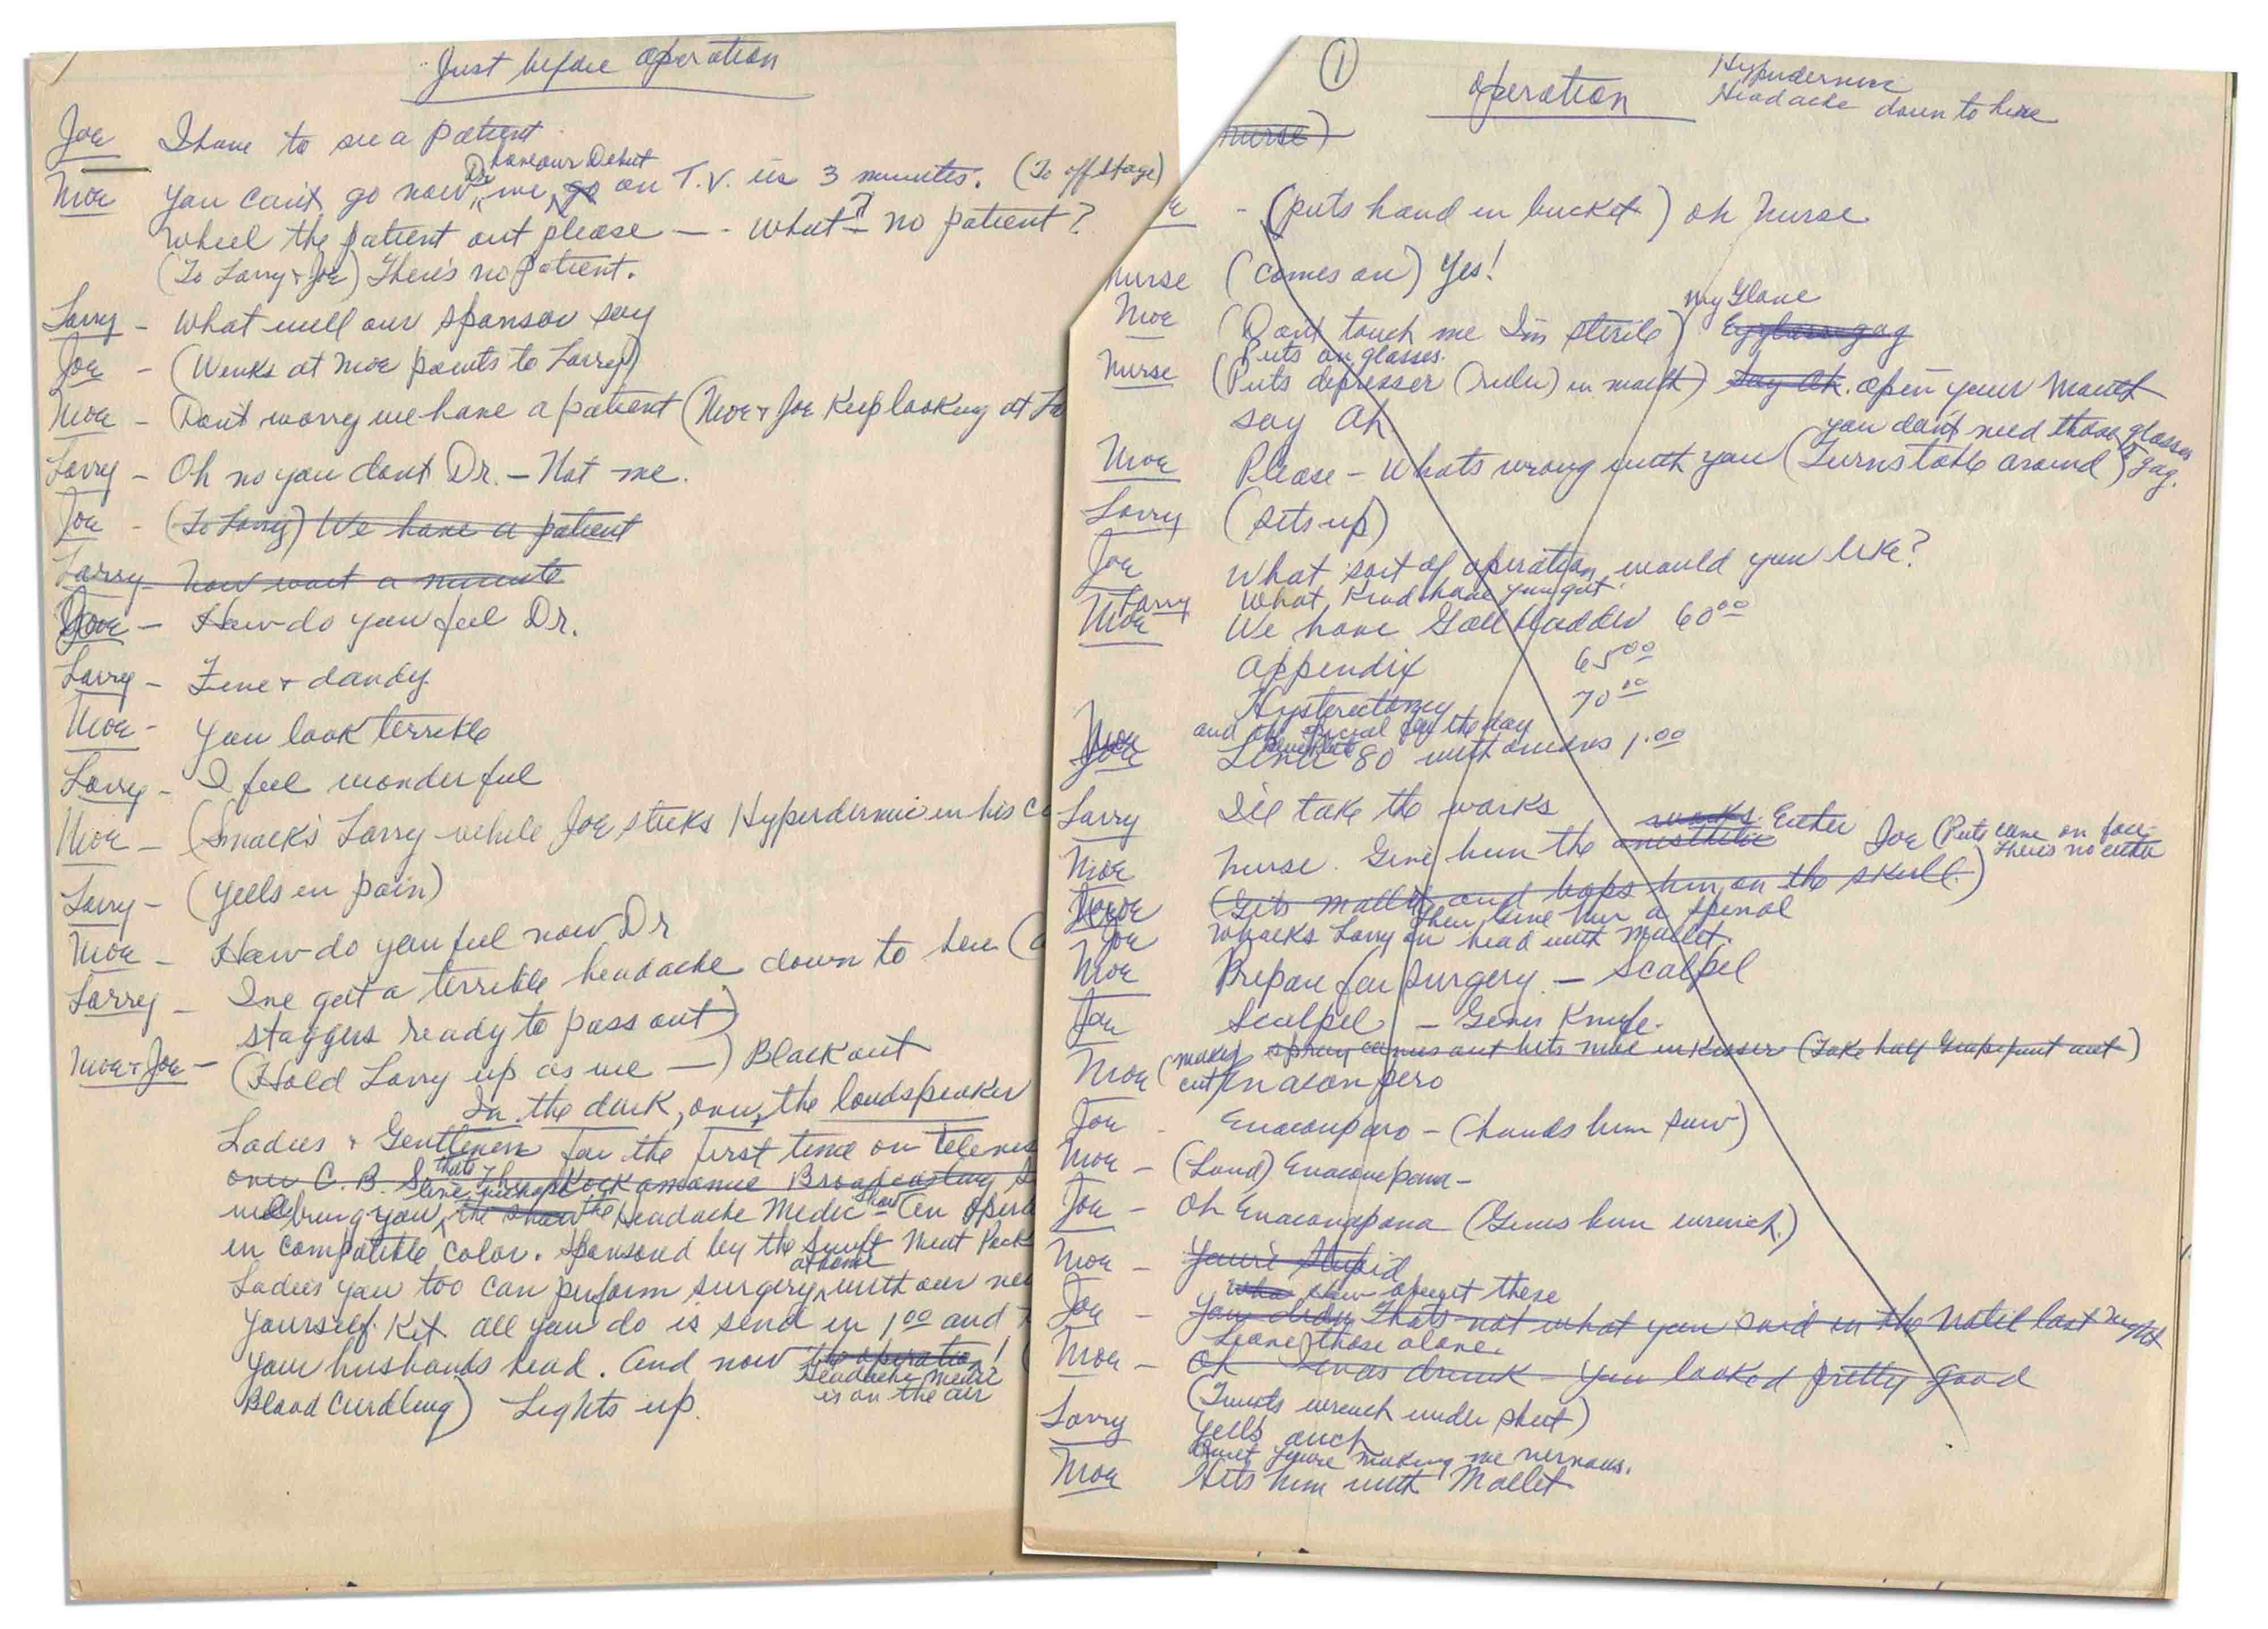 Just before operation
Joe I have to see a patient
Dr. have our Debut
Moe You can't go now we go on T.V. in 3 minutes. (To off stage)
Wheel the patient out please — - What? no patient?
(To Larry + Joe) There's no patient.
Larry - What will our sponsor say
Joe - (Winks at Moe points to Larry)
Moe - Don't worry we have a patient (Moe + Joe Keep looking at La
Larry - Oh no you dont Dr. — Not me.
Joe - (To Larry) We have a patient
Larry now wait a minute
Joe - How do you feel Dr.
Larry - Fine + dandy
Moe - You look terrible
Larry - I feel wonderful
Moe - (Smacks Larry while Joe sticks Hyperdermic in his
Larry - (Yells in pain)
Moe - How do you feel now Dr
Larry - I've got a terrible headache down to here (
staggers ready to pass out)
Moe + Joe - (Hold Larry up as we —) Blackout
In the dark, over the loudspeaker
Ladies + Gentlemen for the first time on Televis
over C.B.S. thats The Rock amanie Broadcasting S
we bring you live the show the Headache Medic show An Opera
in compatible color. Sponsord by the Swift Meat Pack
at home
Ladies you too can perform surgery with our new
yourself Kit all you do is send in 1.00 and
your husbands head. And now the operation! (
Headache Medic
is on the air
Blood Curdling) Lights up.
① Operation Hyperdermic
Headache down to here
Nurse)
- (puts hand in bucket) oh Nurse
Nurse (comes on) Yes!
my Glove
Moe (Don't touch me I'm sterile) Eyeglasses gag
Puts on glasses.
Nurse (Puts depresser (ruler) in mouth) Say Ah. open your Mouth
say Ah
you don't need those glasses
Moe Please - Whats wrong with you (Turns table around) gag.
Larry (sits up)
Joe What sort of operation would you like?
Larry What kind have you got
Moe We have Gall bladder 60.00
Appendix 65.00
Hysterectomy 70.00
and the special for the day
Joe Liver 80 with onions 1.00
Larry I'll take the works
Moe Nurse. Give him the works anesthetic Either Joe (Puts cone on face-
There's no either
(Gets mallet and bops him on the skull.)
Moe Then Give him a spinal
Joe Whacks Larry on head with mallet.
Moe Prepare for surgery. — Scalpel
Joe Scalpel — Gives Knife.
spray comes out hits moe in kisser (Take half Grapefruit out)
Moe (makes cut) Anacanpero
Joe - Enacanparo - (hands him saw)
Moe - (Loud) Enacanpana -
Joe - Oh Enacanapana (Gives him wrench.)
Moe - You're Stupid
Who How about these
Joe - You didn That's not what you said in the Hotel last night
Leave those alone.
Moe - Oh I was drunk - You looked pretty good
(Twists wrench under sheet)
Larry Yells ouch
Quiet you're making me nervous.
Moe Hits him with Mallet